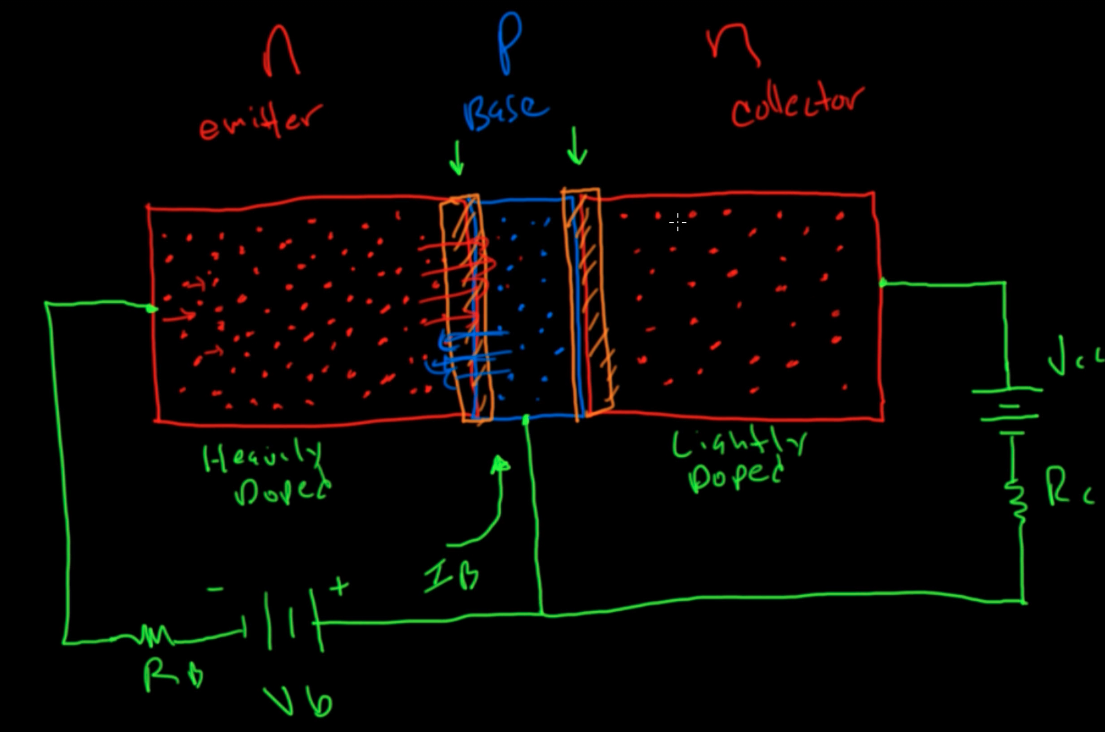 n P n
emitter Base collector
Heavily
Doped
Lightly
Doped
Vcc
Rc
IB
- +
RB
Vb